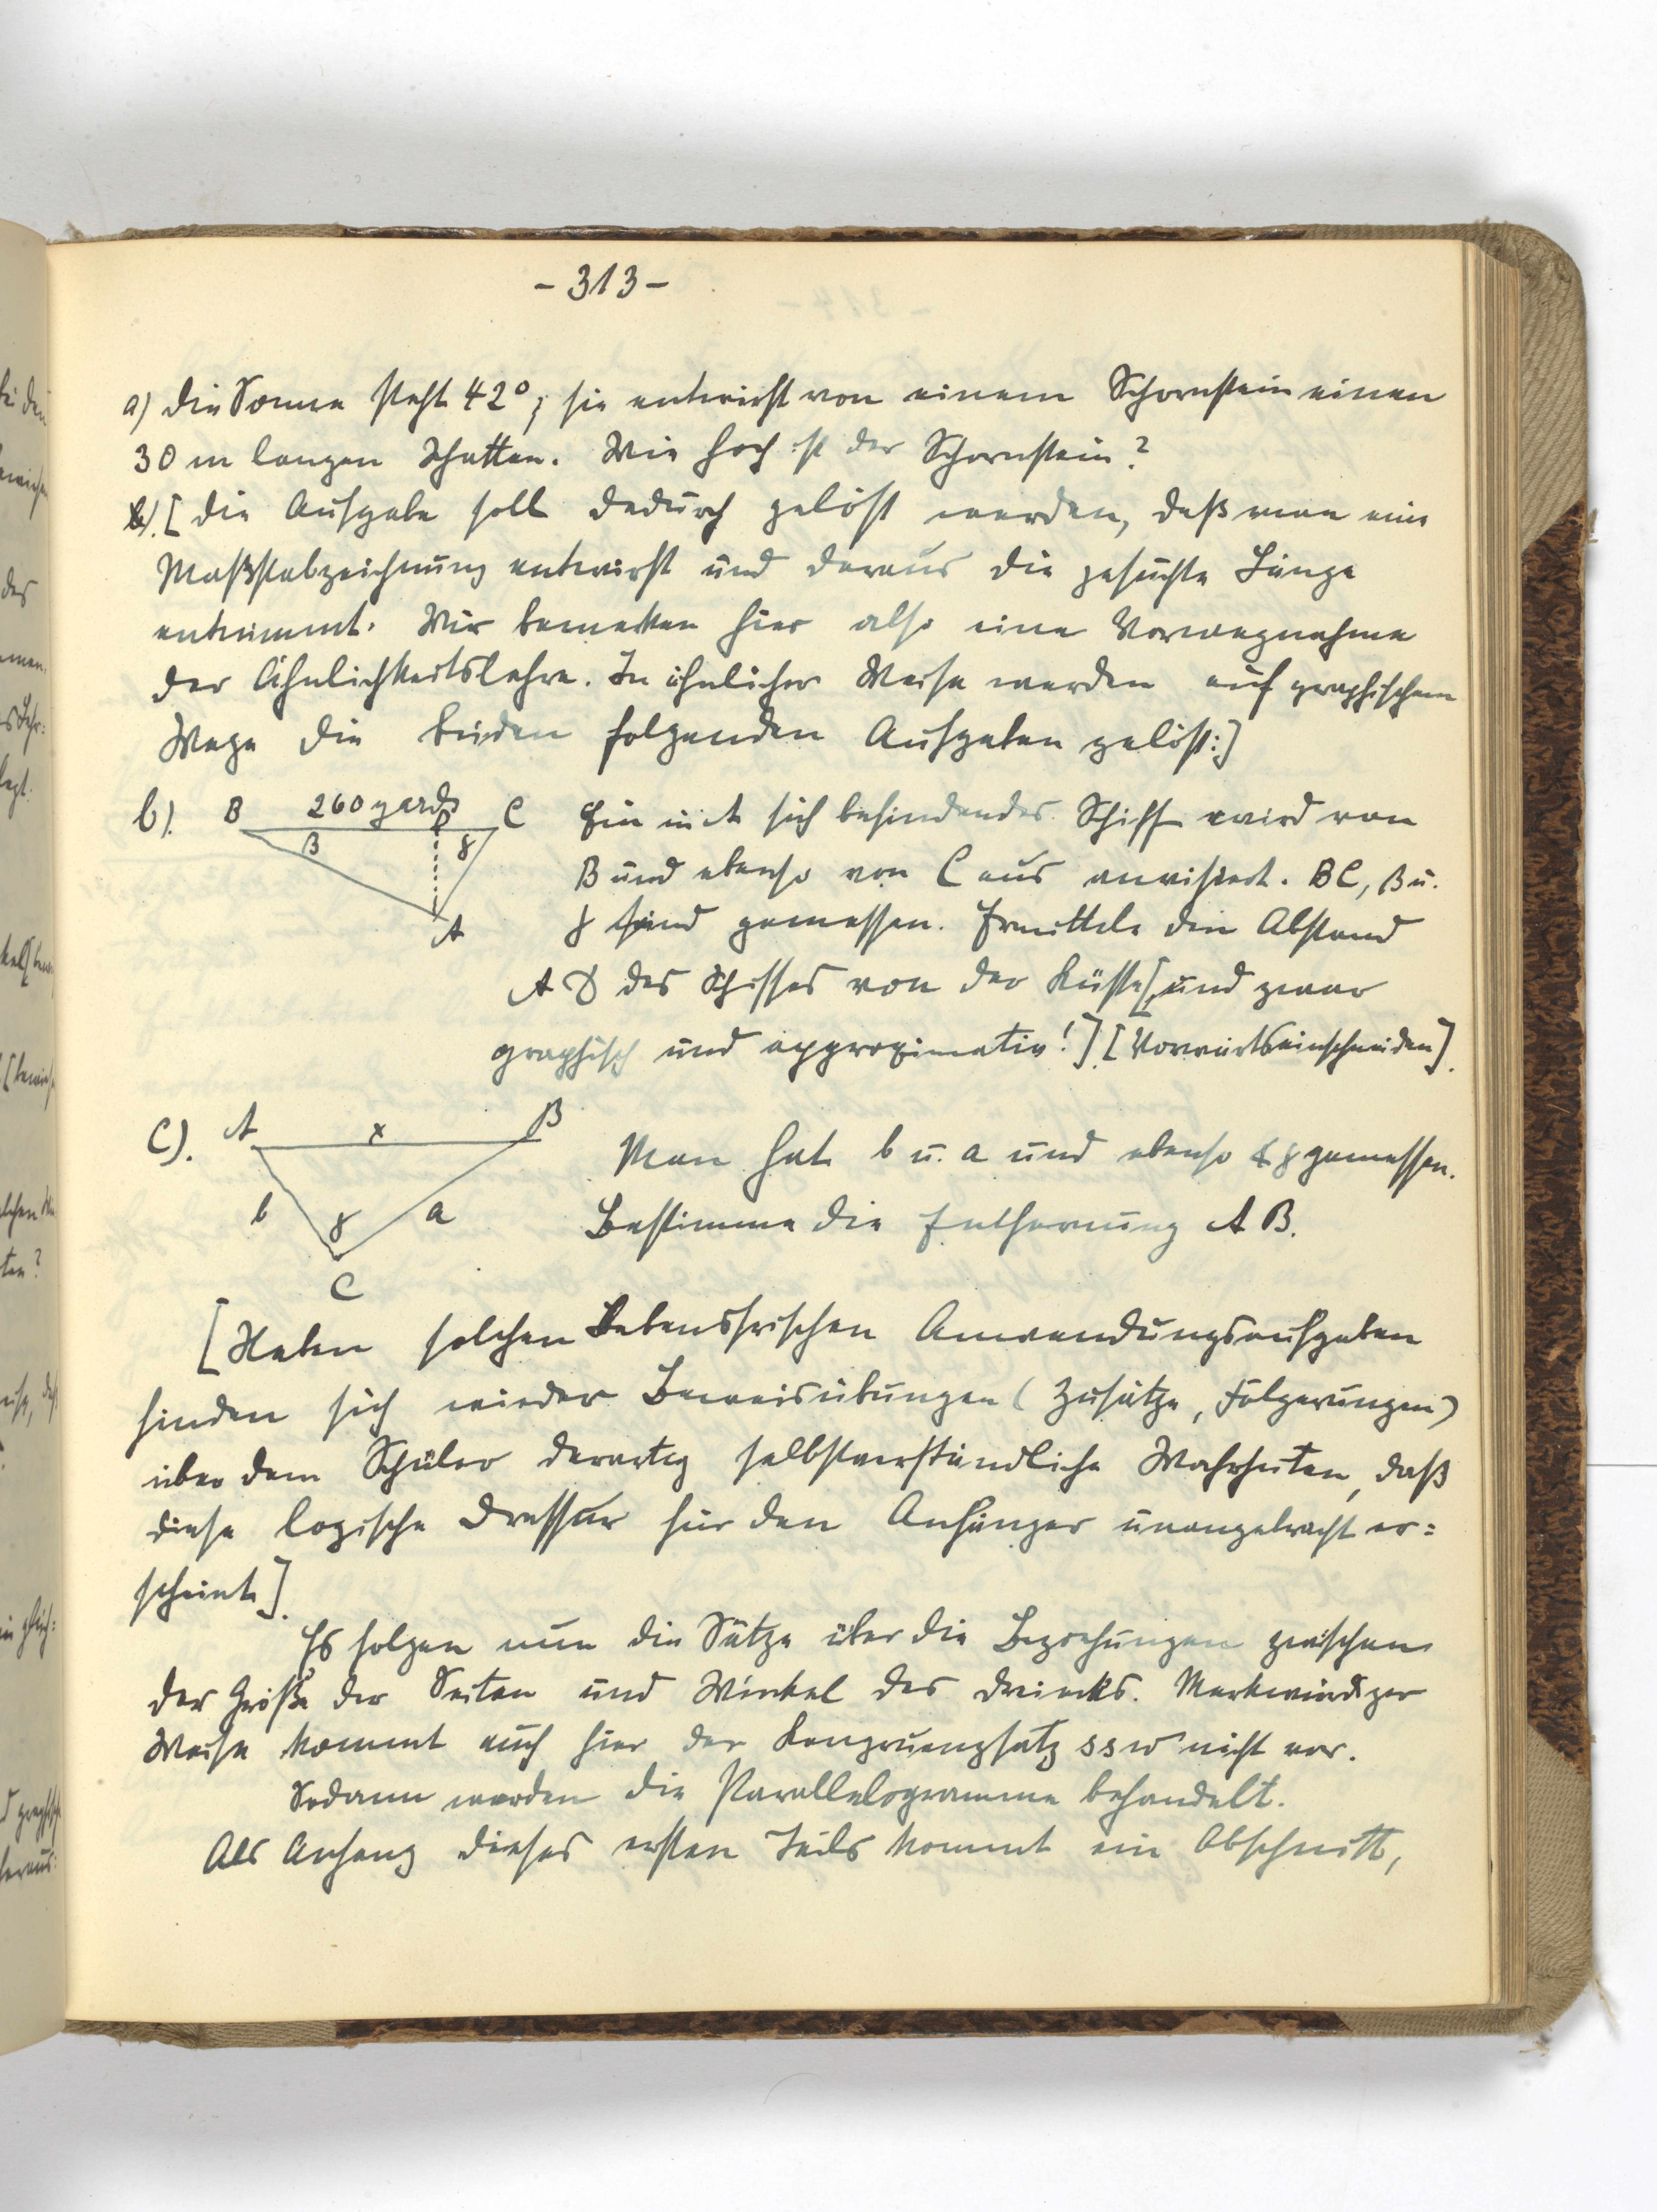 - 313 -
a) die Sonne steht 42°; sie entwirft von einem Schornstein einen
30 m langen Schatten. Wie hoch ist der Schornstein?
[die Aufgabe soll dadurch gelöst werden, daß man eine
Maßstabzeichnung entwirft und daraus die gesuchte Länge
entnimmt. Wir bemerken hier also eine Vorwegnahme
der Ähnlichkeitslehre. In ähnlicher Weise werden auf graphischem
Wege die beiden folgenden Aufgaben gelöst:]
b). B 260 yards D C
β γ
A
Ein in A sich befindendes Schiff wird von
B und ebenso von C aus anvisiert. BC, β u.
γ sind gemessen. Ermittele den Abstand
A D des Schiffes von der Küste[, und zwar
graphisch und approximativ!]. [Vorwärtseinschneiden].
C). A x B
b γ a
C
Man hat b u. a und ebenso ∢ γ gemessen.
Bestimme die Entfernung A B.
[Neben solchen Lebensfrischen Anwendungsaufgaben
finden sich wieder Beweisübungen (Zusätze, Folgerungen)
über dem Schüler derartig selbstverständliche Wahrheiten, daß
diese logische Dressur für den Anfänger unangebracht er=
scheint].
Es folgen nun die Sätze über die Beziehungen zwischen
der Größe der Seiten und Winkel des Dreiecks. Merkwürdiger
Weise kommt auch hier der Kongruenzsatz ssw nicht vor.
Sodann werden die Parallelogramme behandelt.
Als Anhang dieses ersten Teils kommt ein Abschnitt,